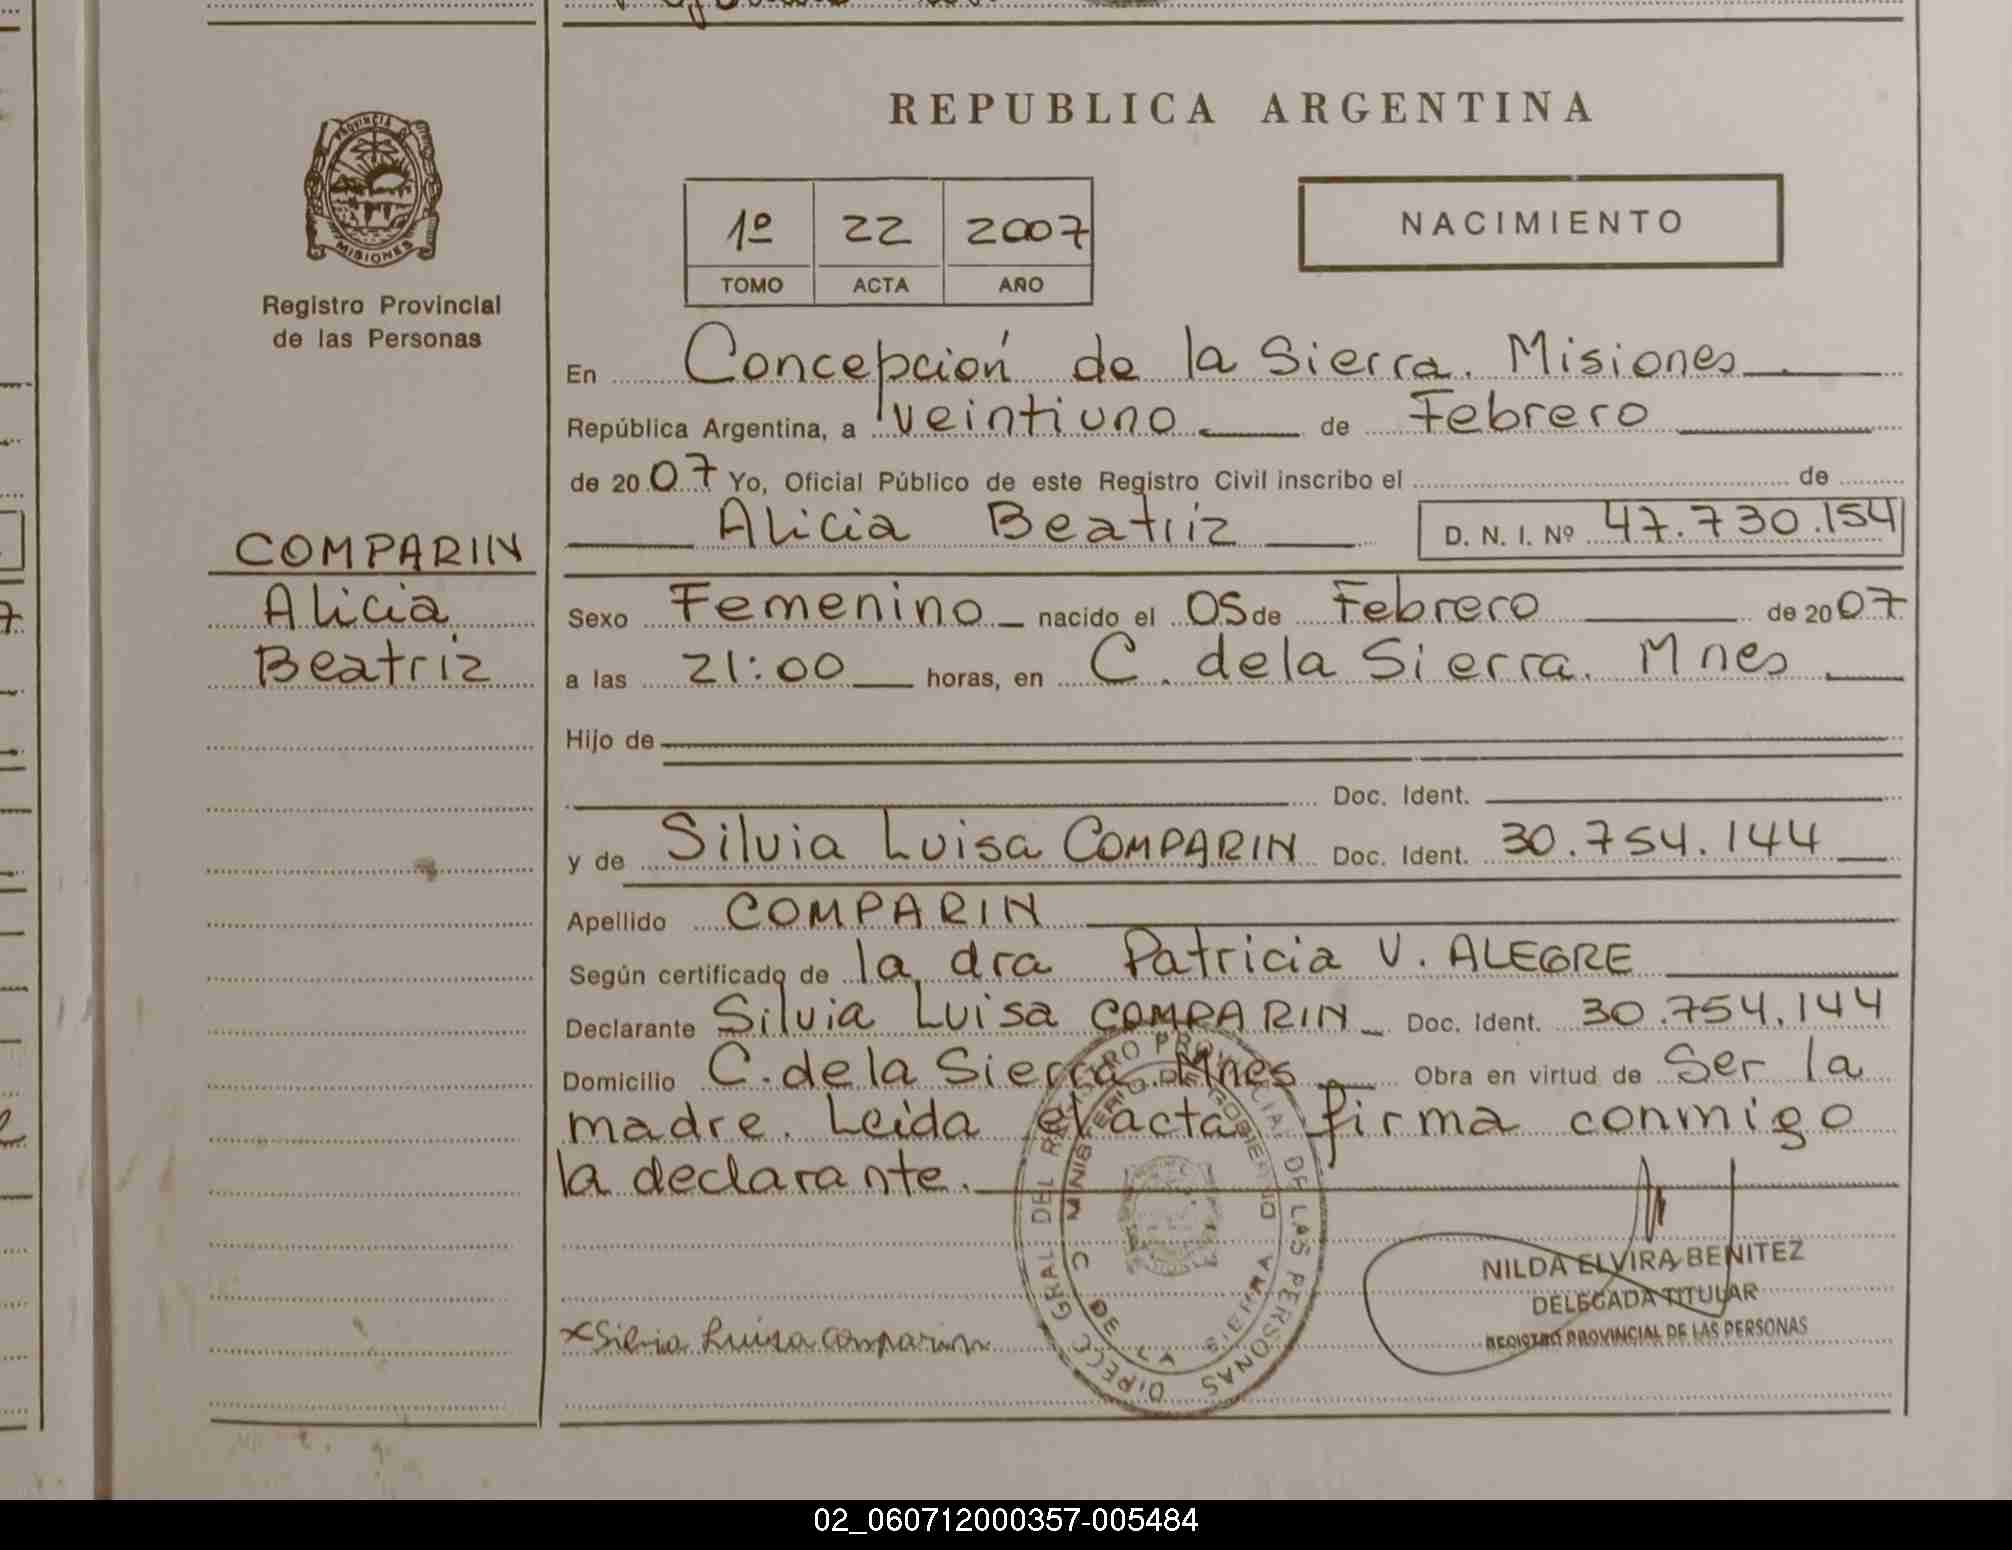 REPUBLICA ARGENTINA
PROVINCIA DE
MISIONES
Registro Provincial
de las Personas
1º 22 2007
TOMO ACTA AÑO
NACIMIENTO
En Concepción de la Sierra. Misiones
República Argentina, a veintiuno de Febrero
de 2007 Yo, Oficial Público de este Registro Civil inscribo el de
Alicia Beatriz D. N. I. Nº 47.730.154
COMPARIN
Alicia
Beatriz
Sexo Femenino nacido el 05 de Febrero de 2007
a las 21:00 horas, en C. de la Sierra. Mnes
Hijo de
Doc. Ident.
y de Silvia Luisa COMPARIN Doc. Ident. 30.754.144
Apellido COMPARIN
Según certificado de la dra Patricia V. ALEGRE
Declarante Silvia Luisa COMPARIN Doc. Ident. 30.754.144
Domicilio C. de la Sierra Mnes Obra en virtud de Ser la
madre. Leida el acta firma conmigo
la declarante.
DIRECC GRAL DEL REGISTRO PROVINCIAL DE LAS PERSONAS
MINISTERIO DE GOBIERNO
C DE LA SIERRA
NILDA ELVIRA BENITEZ
DELEGADA TITULAR
REGISTRO PROVINCIAL DE LAS PERSONAS
x Silvia Luisa Comparin
02_060712000357-005484